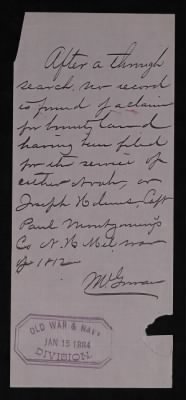 After a through
search, no record
is found of a claim
for bounty land
having been filed
for the service of
either Noah, or
Joseph Holmes, Capt
Paul Montgomery's
Co N. H. Mil, war
of 1812
OLD WAR & NAVY
JAN 15 1884
DIVISION